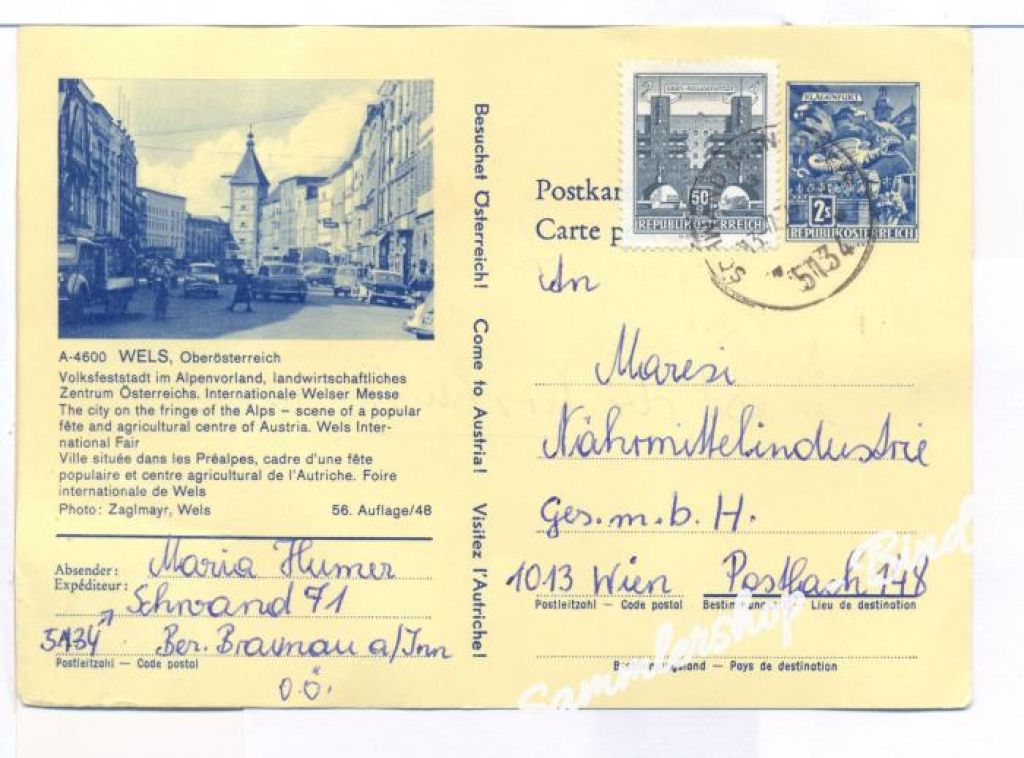 A-4600 WELS, Oberösterreich
Volksfeststadt im Alpenvorland, landwirtschaftliches
Zentrum Österreichs. Internationale Welser Messe
The city on the fringe of the Alps – scene of a popular
fête and agricultural centre of Austria. Wels Inter-
national Fair
Ville située dans les Préalpes, cadre d'une fête
populaire et centre agricultural de l'Autriche. Foire
internationale de Wels
Photo: Zaglmayr, Wels 56. Auflage/48
Absender:
Expéditeur:
Maria Humer
Schwand 71
5134 Ber. Braunau a/Inn
Postleitzahl — Code postal
O.Ö.
Besuchet Österreich! Come to Austria! Visitez l'Autriche!
50
REPUBLIK ÖSTERREICH
KLAGENFURT
2s
REPUBLIK ÖSTERREICH
5134
Postkar
Carte p
An
Maresi
Nährmittelindustrie
Ges.m.b.H.
1013 Wien Postfach 148
Postleitzahl — Code postal Lieu de destination
Pays de destination
Sammlershop